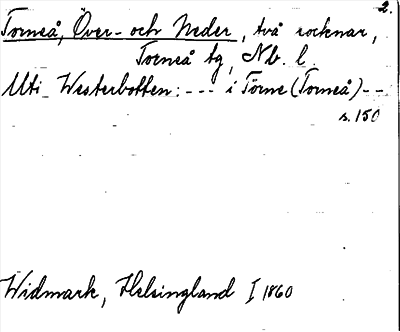 2.
Torneå, Över- och Neder, två socknar,
Torneå tg, Nb. l.
Uti Westerbotten: --- i Törne (Torneå) --
s. 150
Widmark, Helsingland I 1860